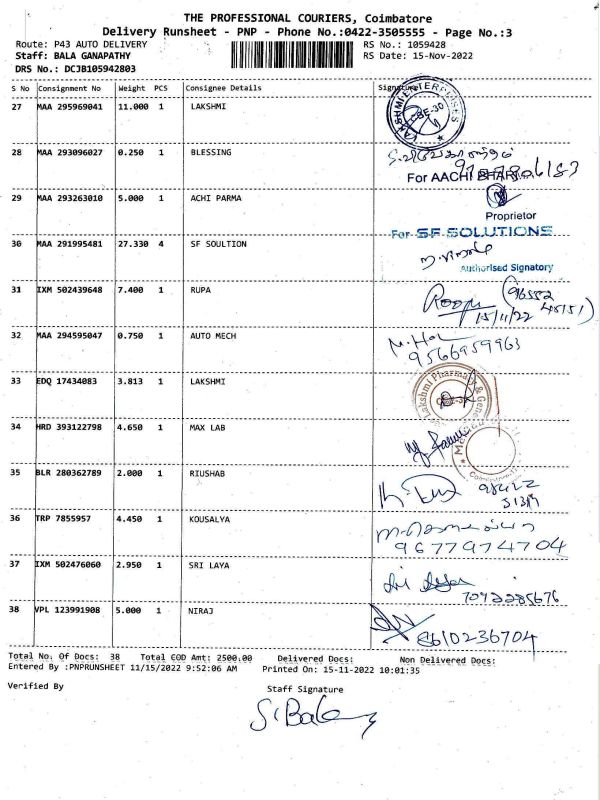 THE PROFESSIONAL COURIERS, Coimbatore
Delivery Runsheet - PNP - Phone No.:0422-3505555 - Page No.:3
Route: P43 AUTO DELIVERY RS No.: 1059428
Staff: BALA GANAPATHY RS Date: 15-Nov-2022
DRS No.: DCJB105942803
S No Consignment No Weight PCS Consignee Details Signature
27 MAA 295969041 11.000 1 LAKSHMI
LAKSHMI ENTERPRISES
CBE-30
28 MAA 293096027 0.250 1 BLESSING
For AACHI BHARANI
29 MAA 293263010 5.000 1 ACHI PARMA
Proprietor
For SF SOLUTIONS
30 MAA 291995481 27.330 4 SF SOULTION
Authorised Signatory
31 IXM 502439648 7.400 1 RUPA
15/11/22
32 MAA 294595047 0.750 1 AUTO MECH
9566959963
33 EDQ 17434083 3.813 1 LAKSHMI
Lakshmi Pharmacy & Gene
34 HRD 393122798 4.650 1 MAX LAB
35 BLR 280362789 2.000 1 RIUSHAB
36 TRP 7855957 4.450 1 KOUSALYA
9677974704
37 IXM 502476060 2.950 1 SRI LAYA
7092285676
38 VPL 123991908 5.000 1 NIRAJ
8610236704
Total No. Of Docs: 38 Total COD Amt: 2500.00 Delivered Docs: Non Delivered Docs:
Entered By :PNPRUNSHEET 11/15/2022 9:52:06 AM Printed On: 15-11-2022 10:01:35
Verified By Staff Signature